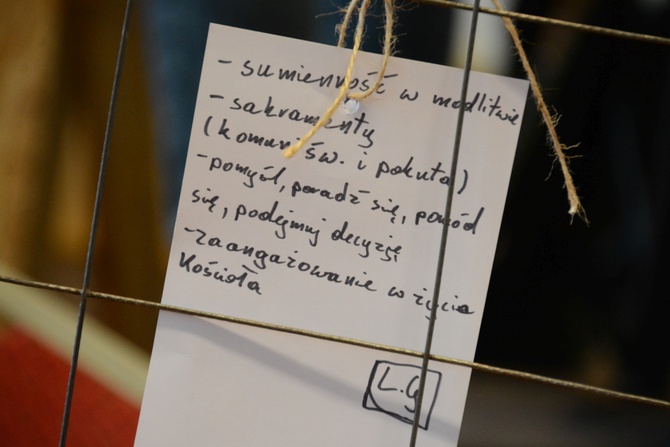 - sumienność w modlitwie
- sakramenty
(komunia św. i pokuta)
- pomyśl, poradź się, pomódl
się, podejmij decyzję
- zaangażowanie w życie
Kościoła
L.G